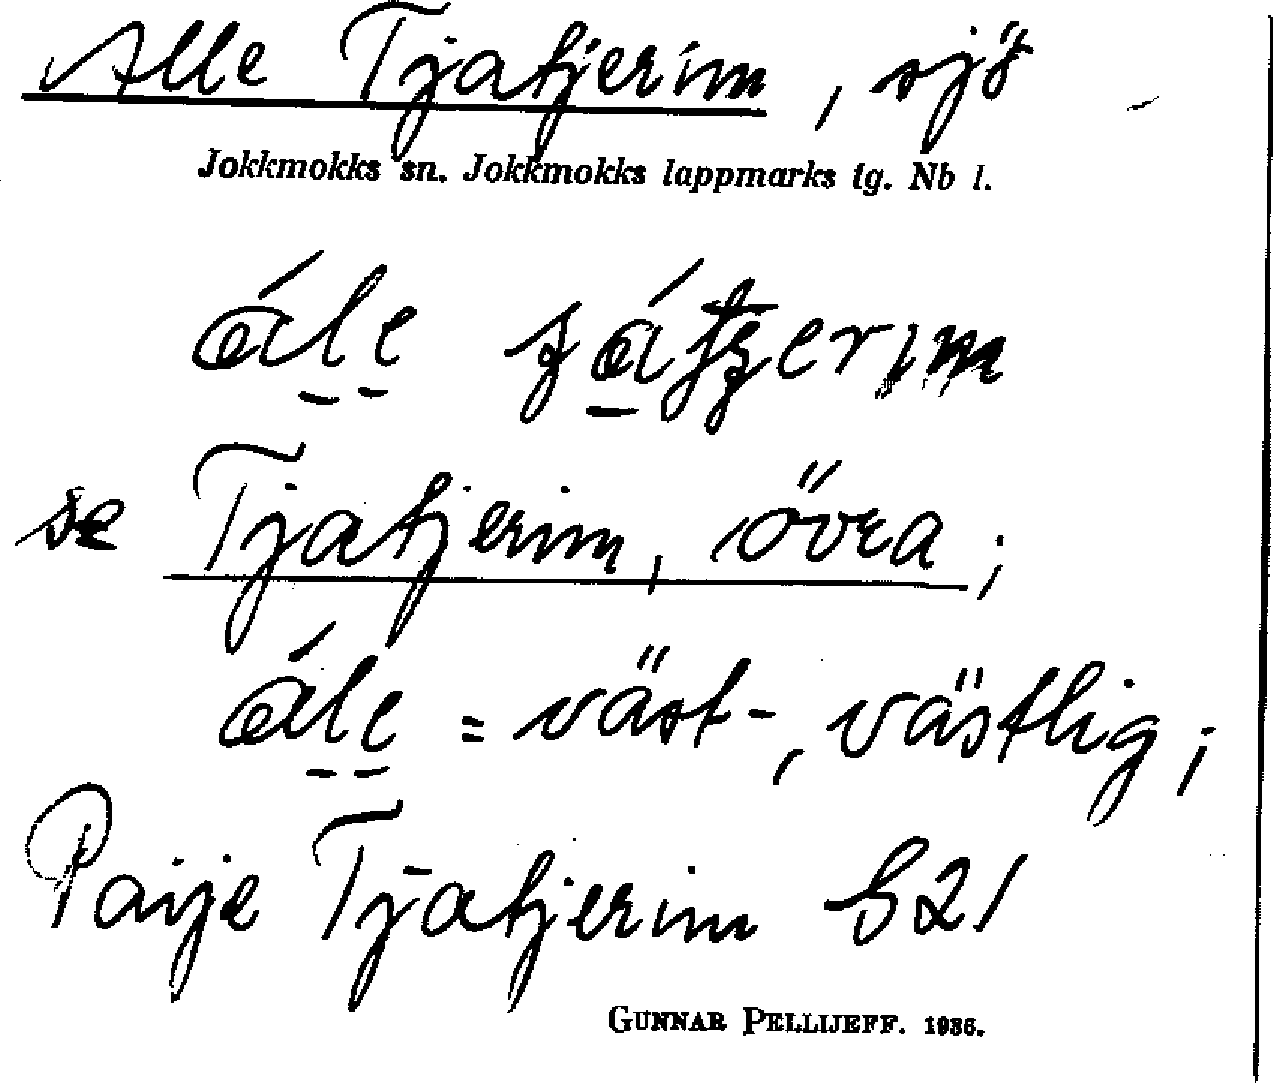 Alle Tjatjerim, sjö
Jokkmokks sn. Jokkmokks lappmarks tg. Nb l.
ále
se Tjatjerim, övra;
ále = väst-, västlig;
Paije Tjatjerim b21
GUNNAR PELLIJEFF. 1936.